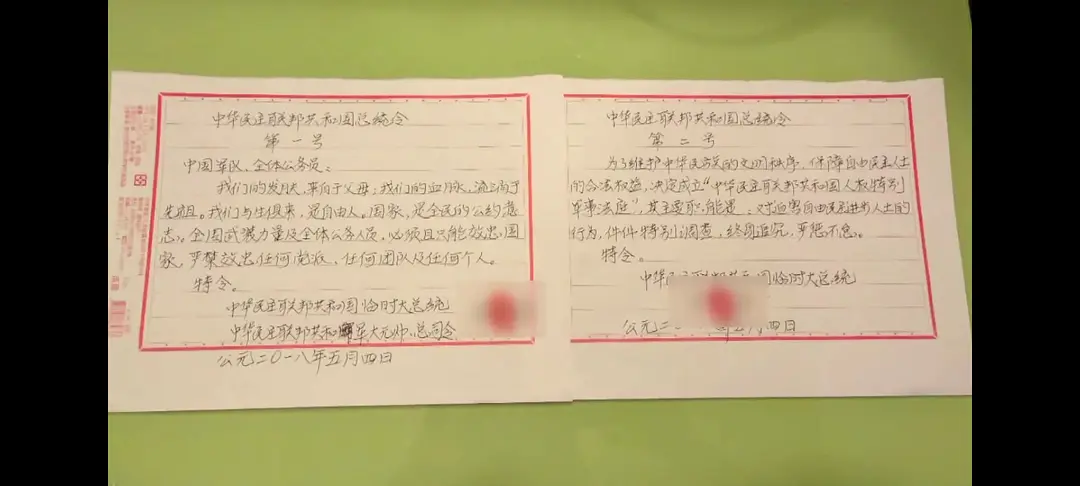 中华民主联邦共和国总统令
第一号
中国军队、全体公务员:
我们的发肤,禀自于父母;我们的血脉,流淌于
先祖。我们与生俱来,是自由人。国家,是全民的公约意
志。全国武装力量及全体公务人员,必须且只能效忠国
家,严禁效忠任何党派、任何团队及任何个人。
特令。
中华民主联邦共和国临时大总统
中华民主联邦共和国军大元帅、总司令
公元二〇一八年五月四日
中华民主联邦共和国总统令
第二号
为了维护中华民族的文明秩序,保障自由民主人士
的合法权益,决定成立“中华民主联邦共和国人权特别
军事法庭”,其主要职能是:对迫害自由民主进步人士的
行为,件件特别调查,终身追究,严惩不怠。
特令。
中华 国临时大总统
公元二 月四日